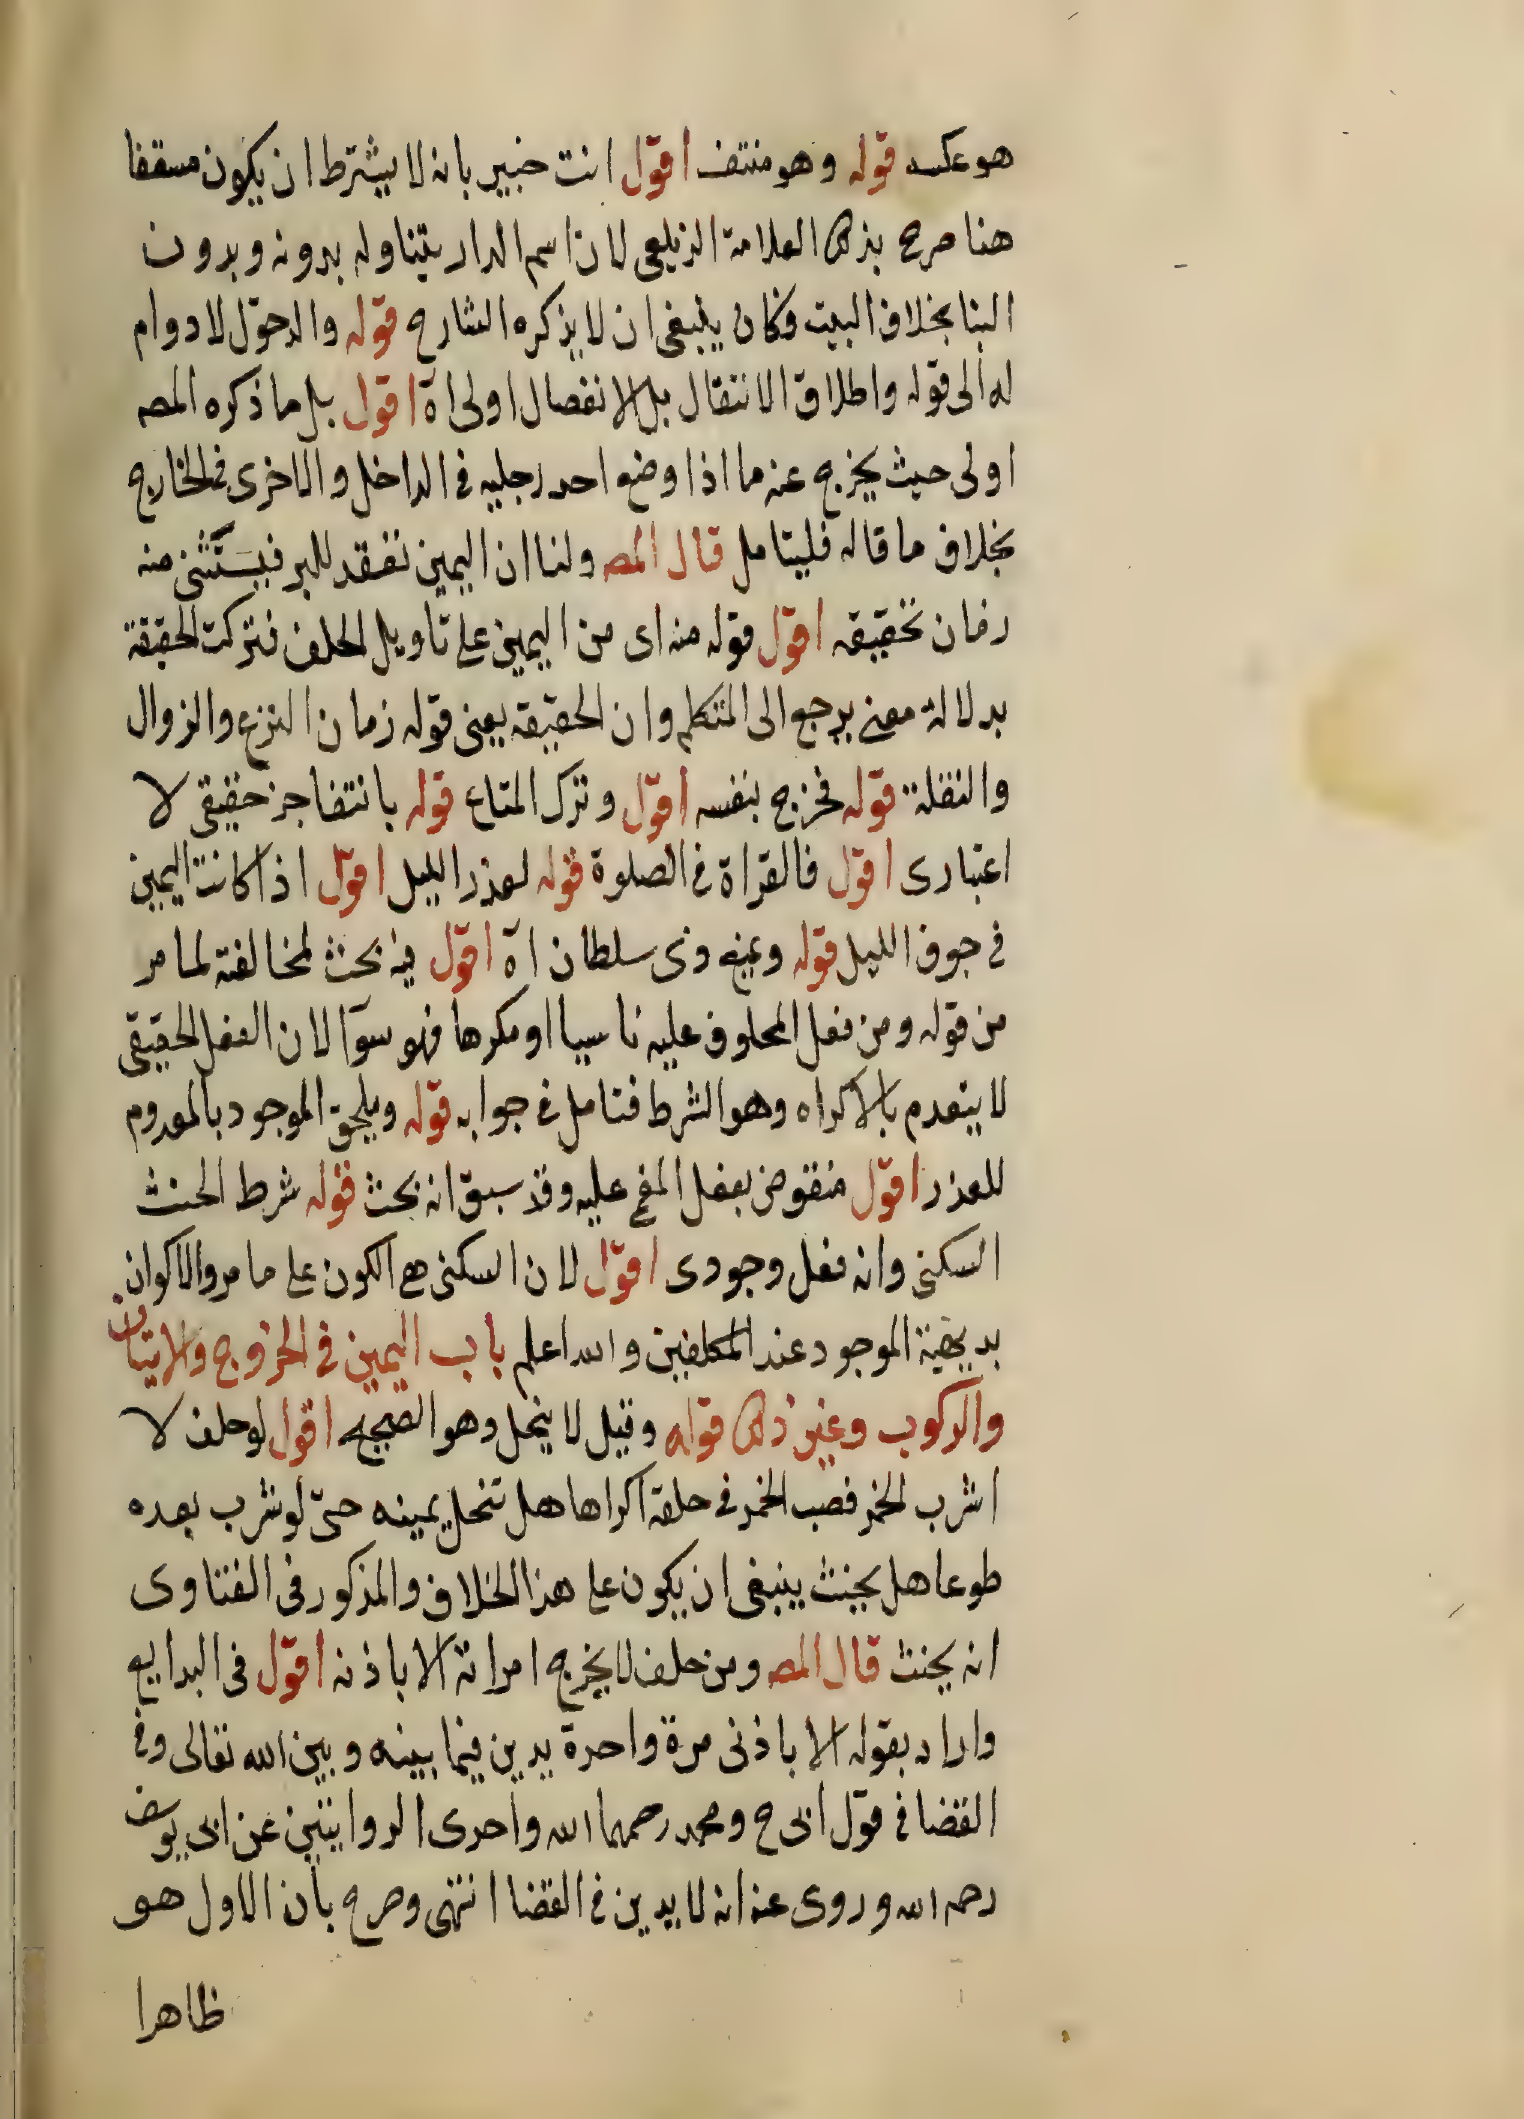 هو عكسه قوله وهو منتف اقول انت خبير بانه لا يشترط ان يكون مسقفا
هنا صرح بذلك العلامة الزيلعى لان اسم الدار يتناوله بدونه وبدون
البنا بخلاف البيت فكان ينبغى ان لا يذكره الشارح قوله والدخول لا دوام
له الى قوله واطلاق الانتقال بل الانفصال اولى اه اقول بل ما ذكره المصـ
اولى حيث يخرج عنه ما اذا وضع احد رجليه فى الداخل والاخرى فى الخارج
بخلاف ما قاله فليتامل قال المصـ ولنا ان اليمين تعقد للبر فيستثنى منه
زمان تحقيقه اقول قوله منه اى من اليمين على تاويل الحلف فتركت الحقيقة
بدلالة معنى يرجع الى المتكلم وان الحقيقة يعنى قوله زمان النزع والزوال
والنقلة قوله فخرج بنفسه اقول وترك المتاع قوله بانتفا جز حقيقى لا
اعتبارى اقول فالقراة فى الصلوة قوله لعذر الليل اقول اذا كانت اليمين
فى جوف الليل قوله ويمنع ذى سلطان اه اقول فيه بحث لمخالفته لما مر
من قوله ومن فعل المحلوف عليه ناسيا او مكرها فهو سوآ لان الفعل الحقيقى
لا ينعدم بالاكراه وهو الشرط فتامل فى جوابه قوله ويلحق الموجود بالمعدوم
للعذر اقول منقوض بفعل المغمى عليه وقد سبق انه بحث قوله شرط الحنث
السكنى وانه فعل وجودى اقول لان السكنى هى الكون على ما مر والاكوان
بديهية الموجود عند المكلفين والله اعلم باب اليمين فى الخروج والاتيان
والركوب وغير ذلك قوله وقيل لا ينحل وهو الصحيح اقول لو حلف لا
اشرب الخمر فصب الخمر فى حلقه اكراها هل تنحل يمينه حتى لو شرب بعده
طوعا هل يحنث ينبغى ان يكون على هذا الخلاف والمذكور فى الفتاوى
انه يحنث قال المصـ ومن حلف لا يخرج امراته الا باذنه اقول فى البدايع
واراد بقوله الا باذنى مرة واحدة يدين فيما بينه وبين الله تعالى وفى
القضا فى قول ابى ح ومحمد رحمهما الله واحدى الروايتين عن ابى يوسف
رحمه الله وروى عنه انه لا يدين فى القضا انتهى وصرح بان الاول هو
ظاهرا